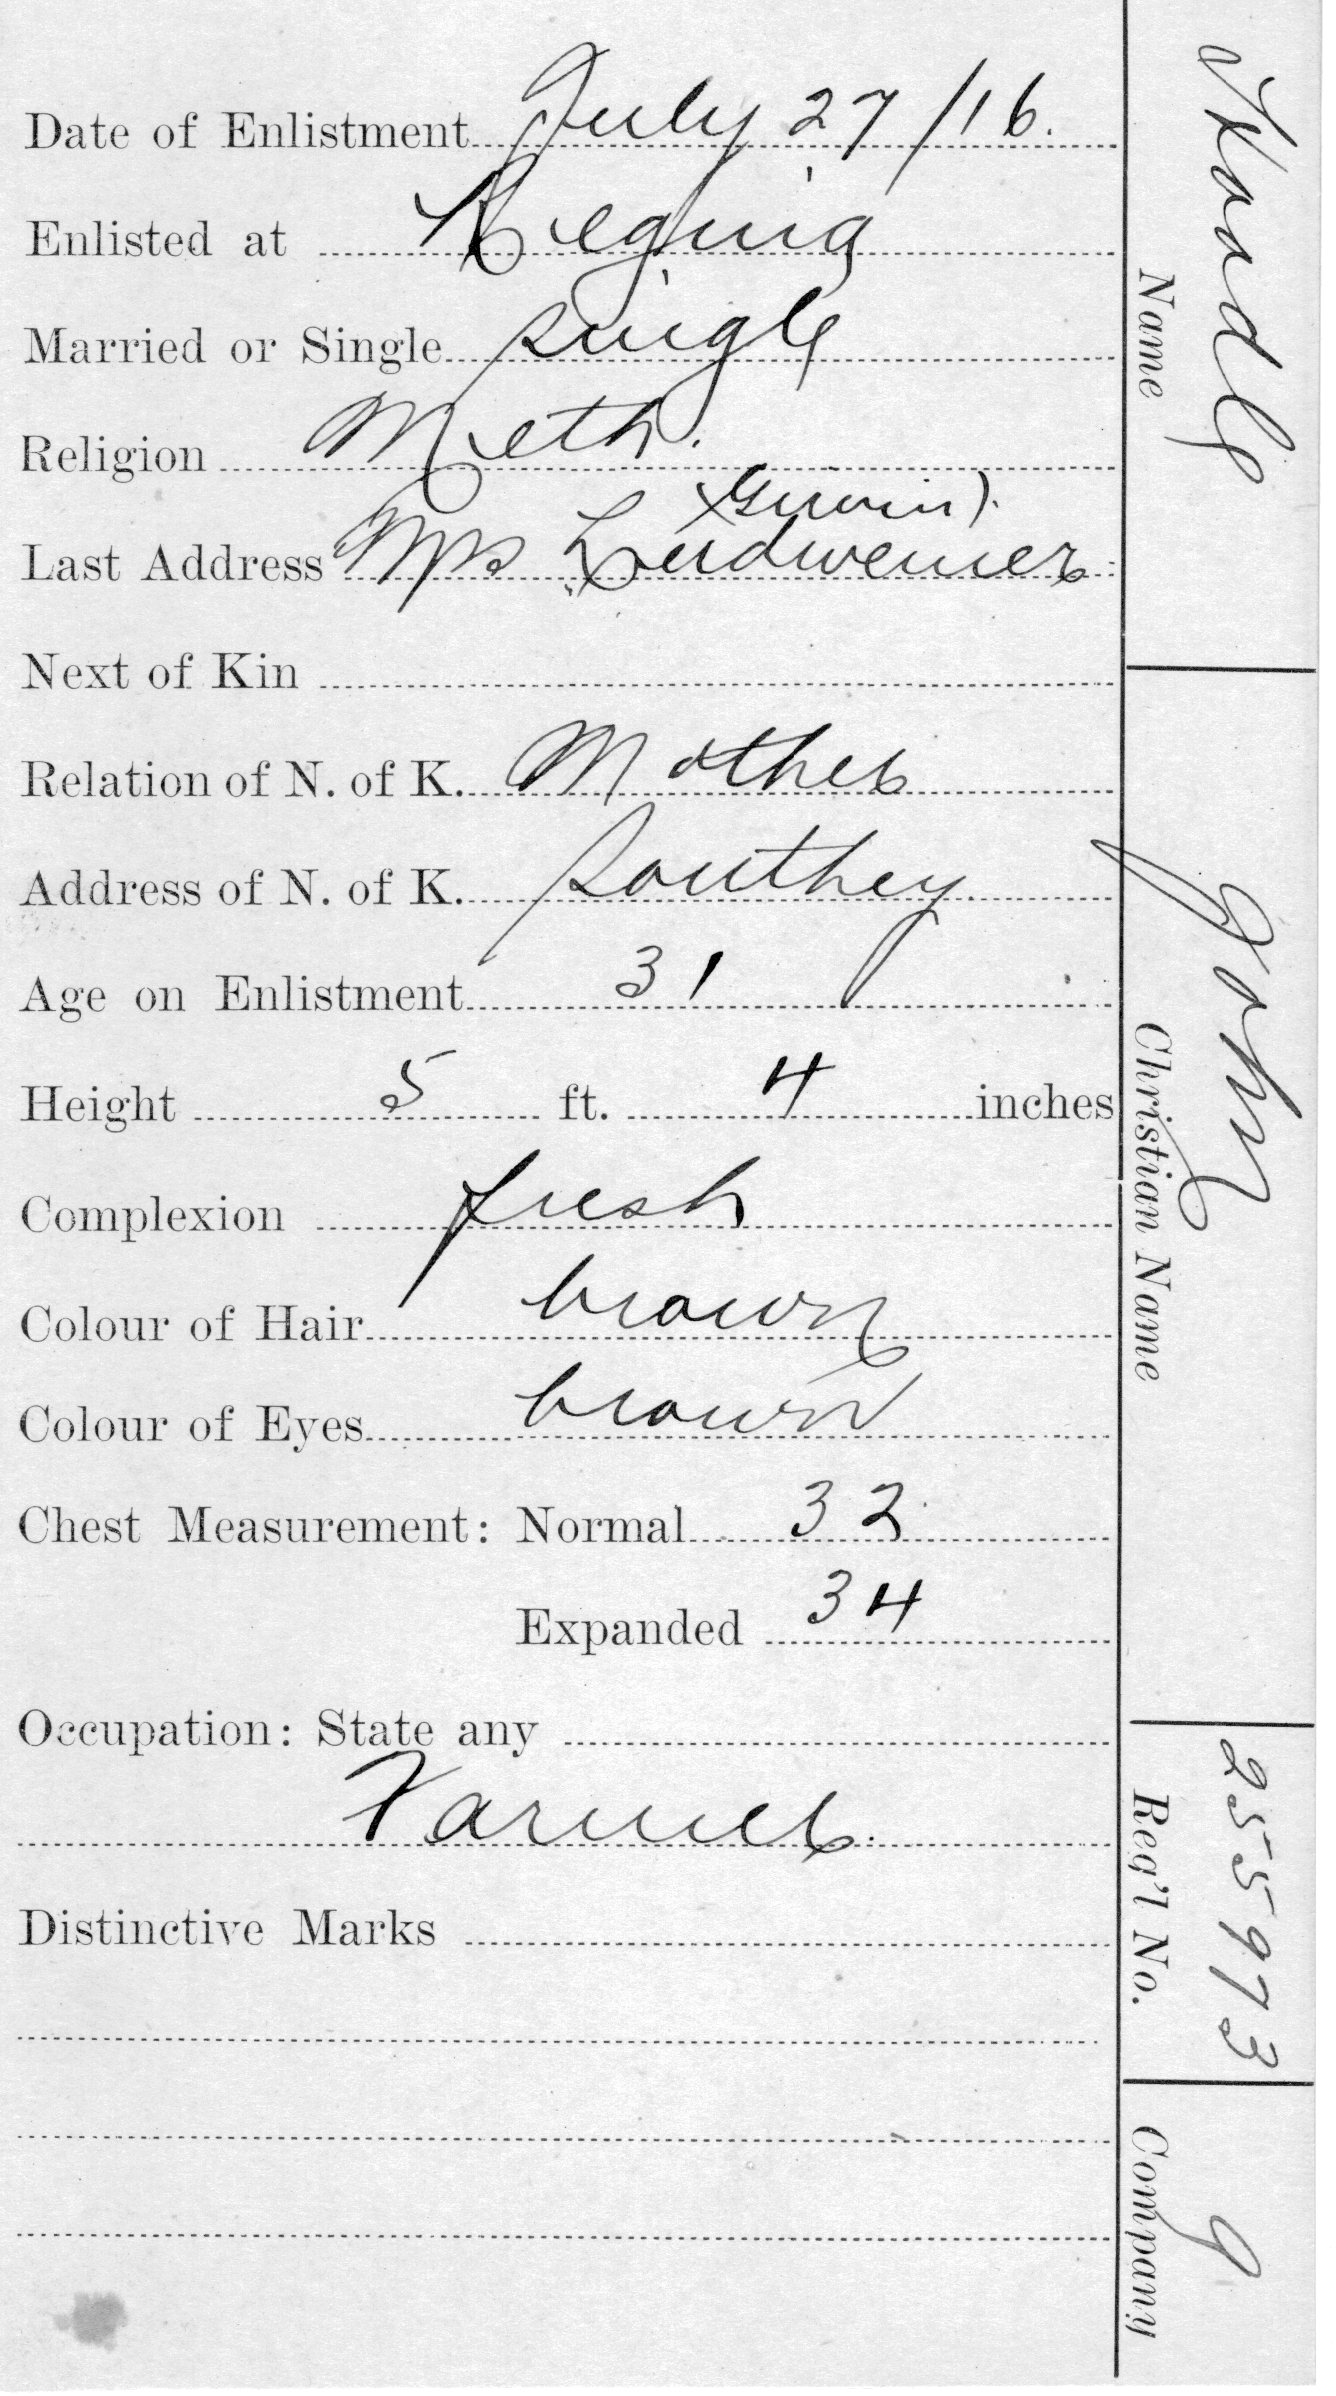 Date of Enlistment July 27/16.
Enlisted at Regina
Married or Single single
Religion Meth.
Last Address Mrs
Next of Kin
Relation of N. of K. Mother
Address of N. of K. Southey
Age on Enlistment 31
Height 5 ft. 4 inches
Complexion fresh
Colour of Hair brown
Colour of Eyes brown
Chest Measurement: Normal 32
Expanded 34
Occupation: State any
Farmer.
Distinctive Marks
Name
John
Christian Name
255973
Reg'l No.
Company